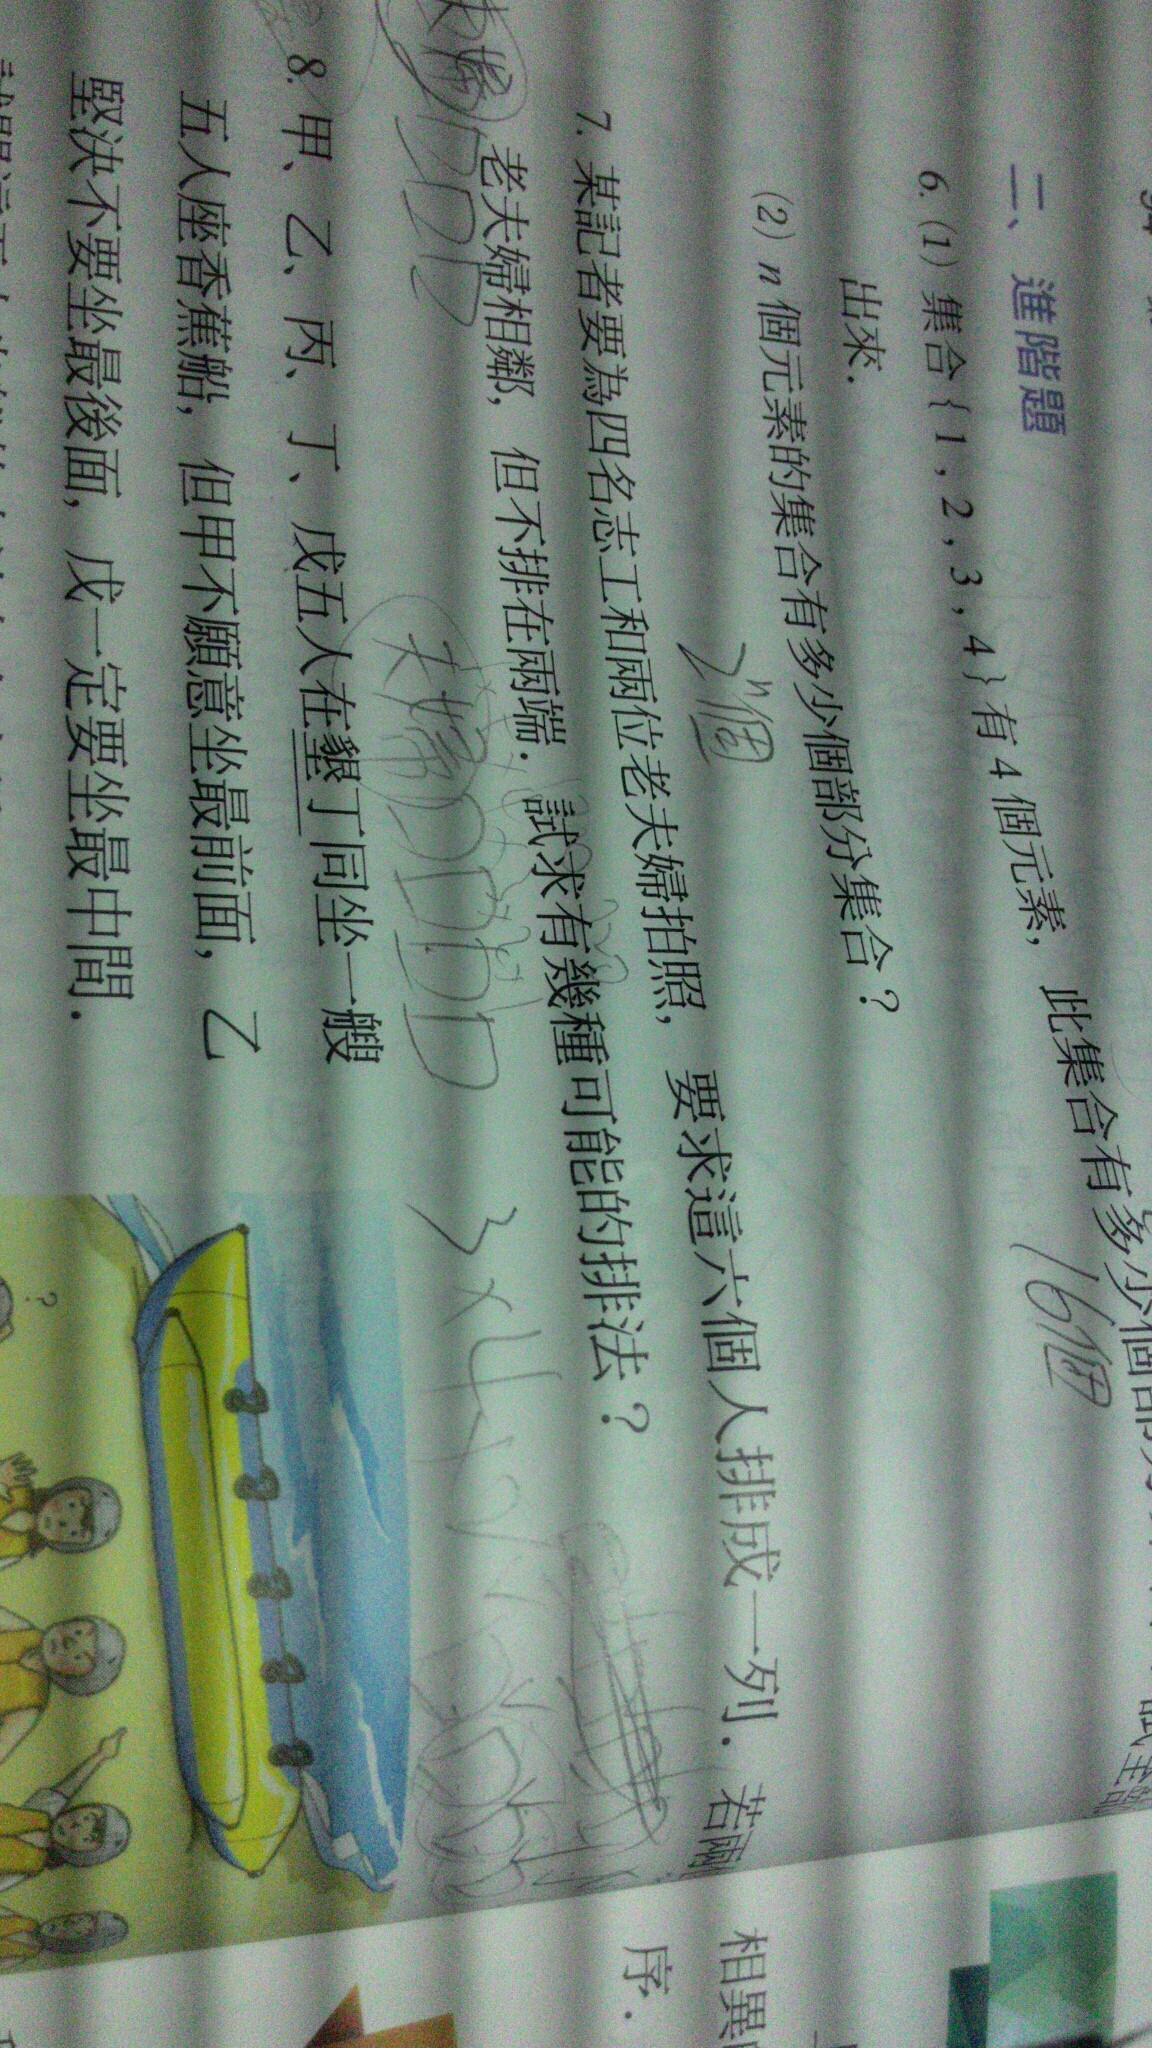 二、進階題
6. (1) 集合 { 1 , 2 , 3 , 4 } 有 4 個元素，此集合有多少個部分
出來．
16個
(2) n 個元素的集合有多少個部分集合？
2ⁿ個
7. 某記者要為四名志工和兩位老夫婦拍照，要求這六個人排成一列．若兩
老夫婦相鄰，但不排在兩端．試求有幾種可能的排法？
夫婦
3×4!
8. 甲、乙、丙、丁、戊五人在墾丁同坐一艘
五人座香蕉船，但甲不願意坐最前面，乙
堅決不要坐最後面，戊一定要坐最中間．
相異
序．